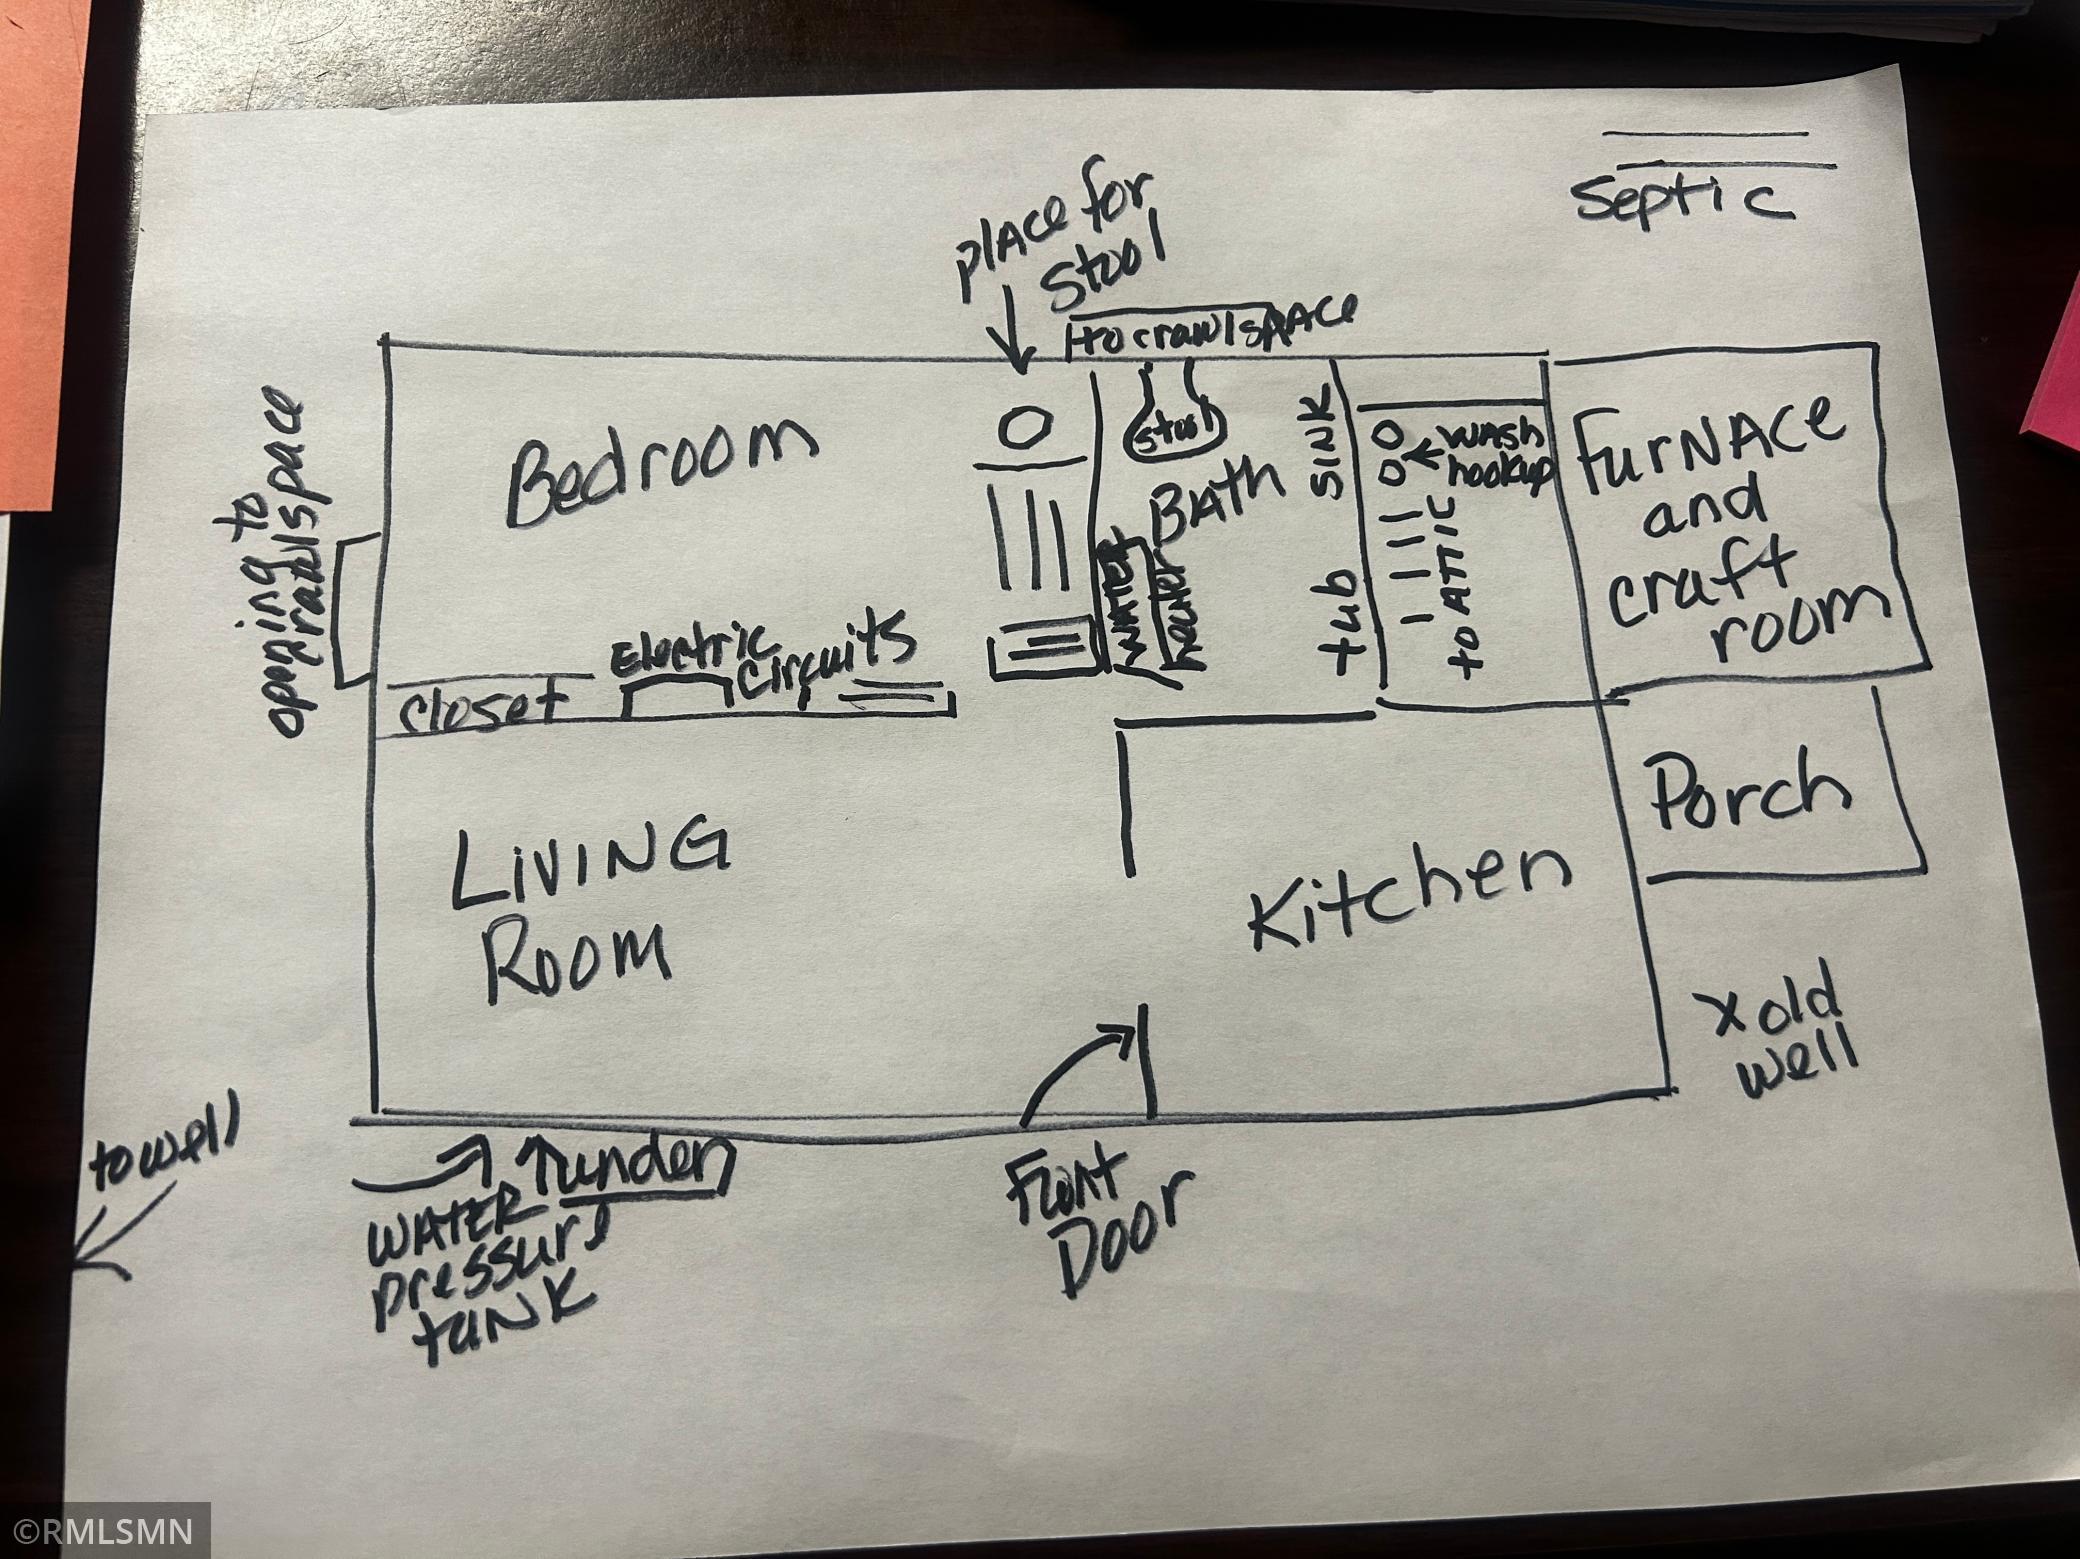 Septic
place for
stool
to crawlspace
opening to
crawlspace
Bedroom
stool
Bath
SINK
tub
wash
hookup
to ATTIC
Furnace
and
craft
room
water
heater
Electric
circuits
closet
Porch
LIVING
ROOM
Kitchen
x old
well
to well
under
WATER
pressure
tank
Front
Door
©RMLSMN